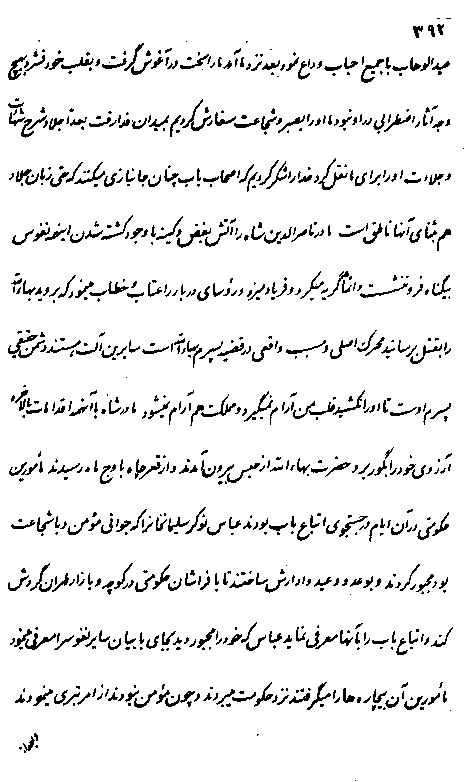 ۳۹۲
عبدالوهاب با جمیع احباب وداع نمود بعد نزد ما آمد ما را سخت در آغوش گرفت و بقلب خود فشرد بهیچ
وجه آثار اضطرابی در او نبود ما او را بصبر و شجاعت سفارش کردیم بمیدان فدا رفت بعداً جلاد شرح شهامت
و جلادت او را برای ما نقل کرد خدا را شکر کردیم که اصحاب باب چنان جانبازی میکنند که حتی زبان جلاد
هم بثنای آنها ناطق است مادر ناصرالدین شاه را آتش بغض و کینه با وجود کشته شدن اینهمه نفوس
بیگناه فرو ننشست دائماً گریه میکرد و فریاد میزد و رؤسای دربار را عتاب و خطاب مینمود که بروید بهاءالله
را بقتل برسانید محرک اصلی و مسبب واقعی در قضیه پسرم بهاءالله است سایرین آلت هستند دشمن حقیقی
پسرم اوست تا او را نکشید قلب من آرام نمیگیرد و مملکت هم آرام نمیشود مادر شاه با آنهمه اقدامات بالاخره
آرزوی خود را بگور برد و حضرت بهاءالله از حبس بیرون آمدند و از قعر چاه باوج ماه رسیدند مأمورین
حکومتی در آن ایام در جستجوی اتباع باب بودند عباس نوکر سلیمانخان را که جوانی مؤمن و با شجاعت
بود مجبور کردند و بوعد و وعید وادارش ساختند تا با فراشان حکومتی در کوچه و بازار طهران گردش
کند و اتباع باب را بآنها معرفی نماید عباس که خود را مجبور دید بجای بابیان سایر نفوس را معرفی مینمود
مأمورین آن بیچاره ها را میگرفتند نزد حکومت میبردند و چون مؤمن نبودند از امر تبری مینمودند